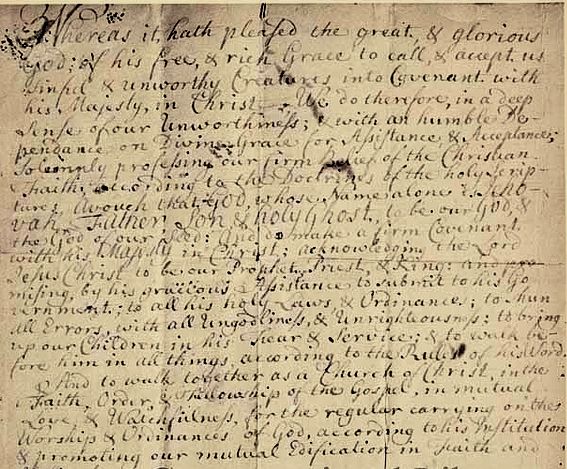 Whereas it, hath pleased the great, & glorious
God; of his free, & rich Grace to call, & accept us
sinful & unworthy Creatures into Covenant with
his Majesty, in Christ We do therefore, in a deep
Sense of our Unworthiness; & with an humble De-
pendance on Divine Grace for Assistance & Acceptance;
Solemnly professing our firm belief of the Christian
Faith, according to the Doctrines of the holy Scrip-
tures, Avouch that God, whose Name alone is Jeho-
vah, Father, Son & holy Ghost, to be our God, &
the God of our Seed: And do make a firm Covenant
with his Majesty in Christ; acknowledging the Lord
Jesus Christ to be our Prophet, Priest, & King: and pro-
mising, by his gracious Assistance to submit to his Go
vernment; to all his holy Laws & Ordinances; to shun
all Errors, with all Ungodliness, & Unrighteousness: to bring
up our Children in his Fear & Service; & to walk be-
fore him in all things, according to the Rules of his Word.
& And to walk together as a Church of Christ, in the
Faith, Order, & Fellowship of the Gospel, in mutual
Love, & Watchfulness, for the regular carrying on the
Worship & Ordinances of God, according to his Institution
& promoting our mutual Edification in Faith and